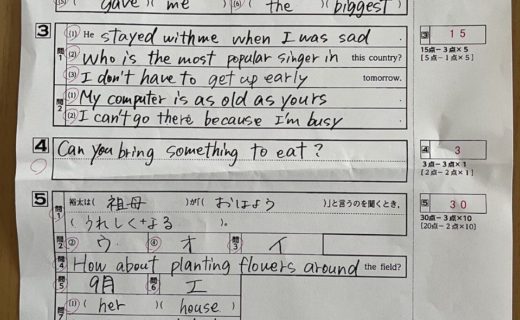 (5) ( gave ) ( me ) (6) ( the ) ( biggest )
3 問1 (1) He stayed with me when I was sad .
(2) Who is the most popular singer in this country?
(3) I don't have to get up early tomorrow.
問2 (1) My computer is as old as yours .
(2) I can't go there because I'm busy .
3 15
15点-3点×5
[5点-1点×5]
4 Can you bring something to eat?
4 3
3点-3点×1
[2点-2点×1]
5 問1 裕太は( 祖母 )が「( おはよう )」と言うのを聞くとき、
( うれしくなる )。
5 30
30点-3点×10
[20点-2点×10]
問2 ② ウ ④ オ 問3 イ
問4 How about planting flowers around the field?
問5 9月 問6 エ
問7 (1) ( her ) ( house )